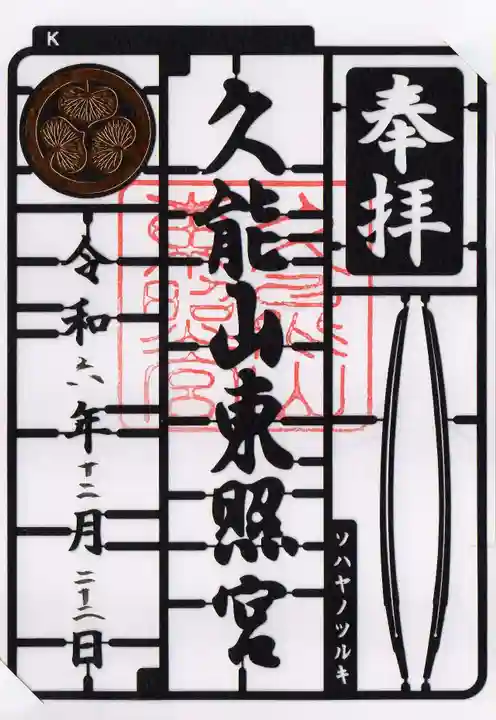 K
奉拝
ソハヤノツルキ
久能山東照宮
久能山
東照宮
令和六年十二月二十二日